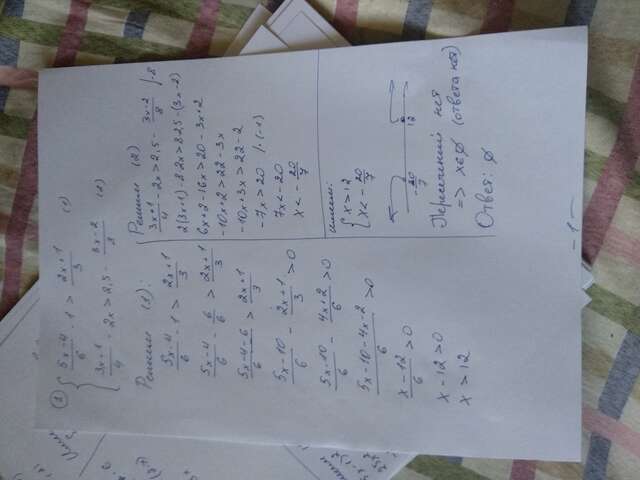 ① { (5x-4)/6 - 1 > (2x+1)/3 (1)
(3x+1)/4 - 2x > 2,5 - (3x-2)/8 (2)
Решим (1):
(5x-4)/6 - 1 > (2x+1)/3
(5x-4)/6 - 6/6 > (2x+1)/3
(5x-4-6)/6 > (2x+1)/3
(5x-10)/6 - (2x+1)/3 > 0
(5x-10)/6 - (4x+2)/6 > 0
(5x-10-4x-2)/6 > 0
(x-12)/6 > 0
x-12 > 0
x > 12
Решим (2)
(3x+1)/4 - 2x > 2,5 - (3x-2)/8 /·8
2(3x+1) - 8·2x > 8·2,5 - (3x-2)
6x+2-16x > 20-3x+2
-10x+2 > 22-3x
-10x+3x > 22-2
-7x > 20 /·(-1)
7x < -20
x < - 20/7
Имеем:
{ x > 12
x < - 20/7
- 20/7 12
Пересечений нет
=> x∈∅ (ответа нет)
Ответ: ∅
- 1 -